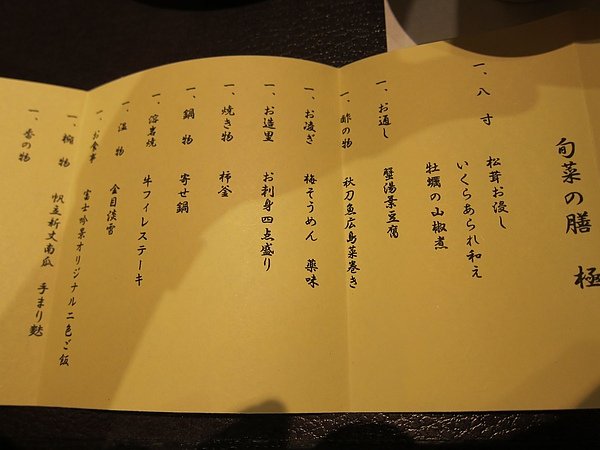 旬菜の膳　極
一、八寸　松茸お浸し
いくらあられ和え
牡蠣の山椒煮
一、お通し　蟹湯葉豆腐
一、酢の物　秋刀魚広島菜巻き
一、お凌ぎ　梅そうめん　薬味
一、お造里　お刺身四点盛り
一、焼き物　柿釜
一、鍋物　寄せ鍋
一、溶岩焼　牛フィレステーキ
一、温物　金目淡雪
一、お食事　富士吟景オリジナル二色ご飯
一、椀物　帆立新丈南瓜　手まり麩
一、香の物